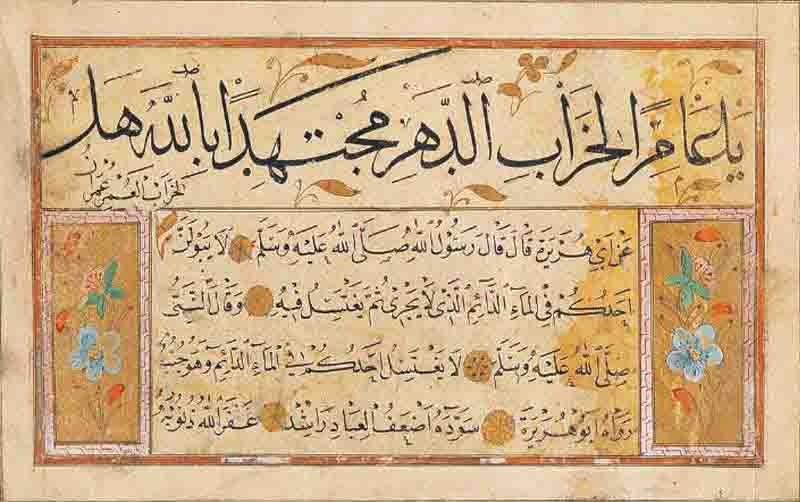 يَا عَامِرًا لِخَرَابِ الدَّهْرِ مُجْتَهِدًا بِاللّٰهِ هَلْ
لِخَرَابِ الْعُمْرِ عُمْرَانُ
عَنْ اَبِي هُرَيْرَةَ قَالَ قَالَ رَسُولُ اللّٰهِ صَلَّى اللّٰهُ عَلَيْهِ وَسَلَّمَ لَا يَبُولَنَّ
اَحَدُكُمْ فِي الْمَاءِ الدَّائِمِ الَّذِي لَا يَجْرِي ثُمَّ يَغْتَسِلُ فِيهِ وَقَالَ النَّبِيُّ
صَلَّى اللّٰهُ عَلَيْهِ وَسَلَّمَ لَا يَغْتَسِلُ اَحَدُكُمْ فِي الْمَاءِ الدَّائِمِ وَهُوَ جُنُبٌ
رَوَاهُ اَبُو هُرَيْرَةَ سَوَّدَهُ اَضْعَفُ الْعِبَادِ رَاشِد غَفَرَ اللّٰهُ ذُنُوبَهُ